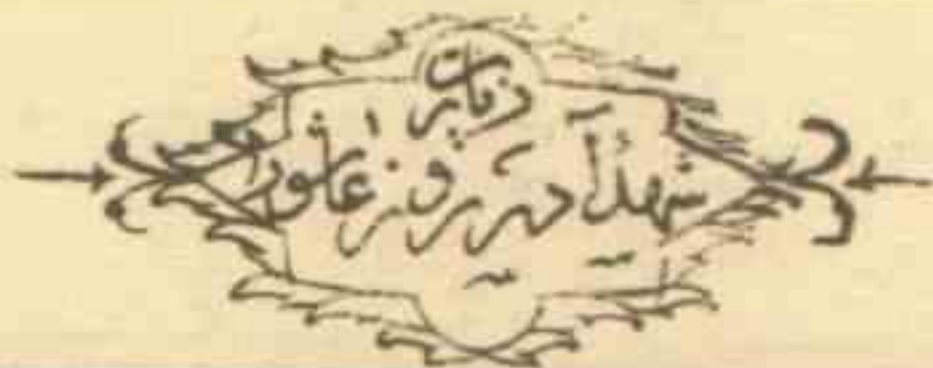 زیارت
شهداء در روز عاشورا